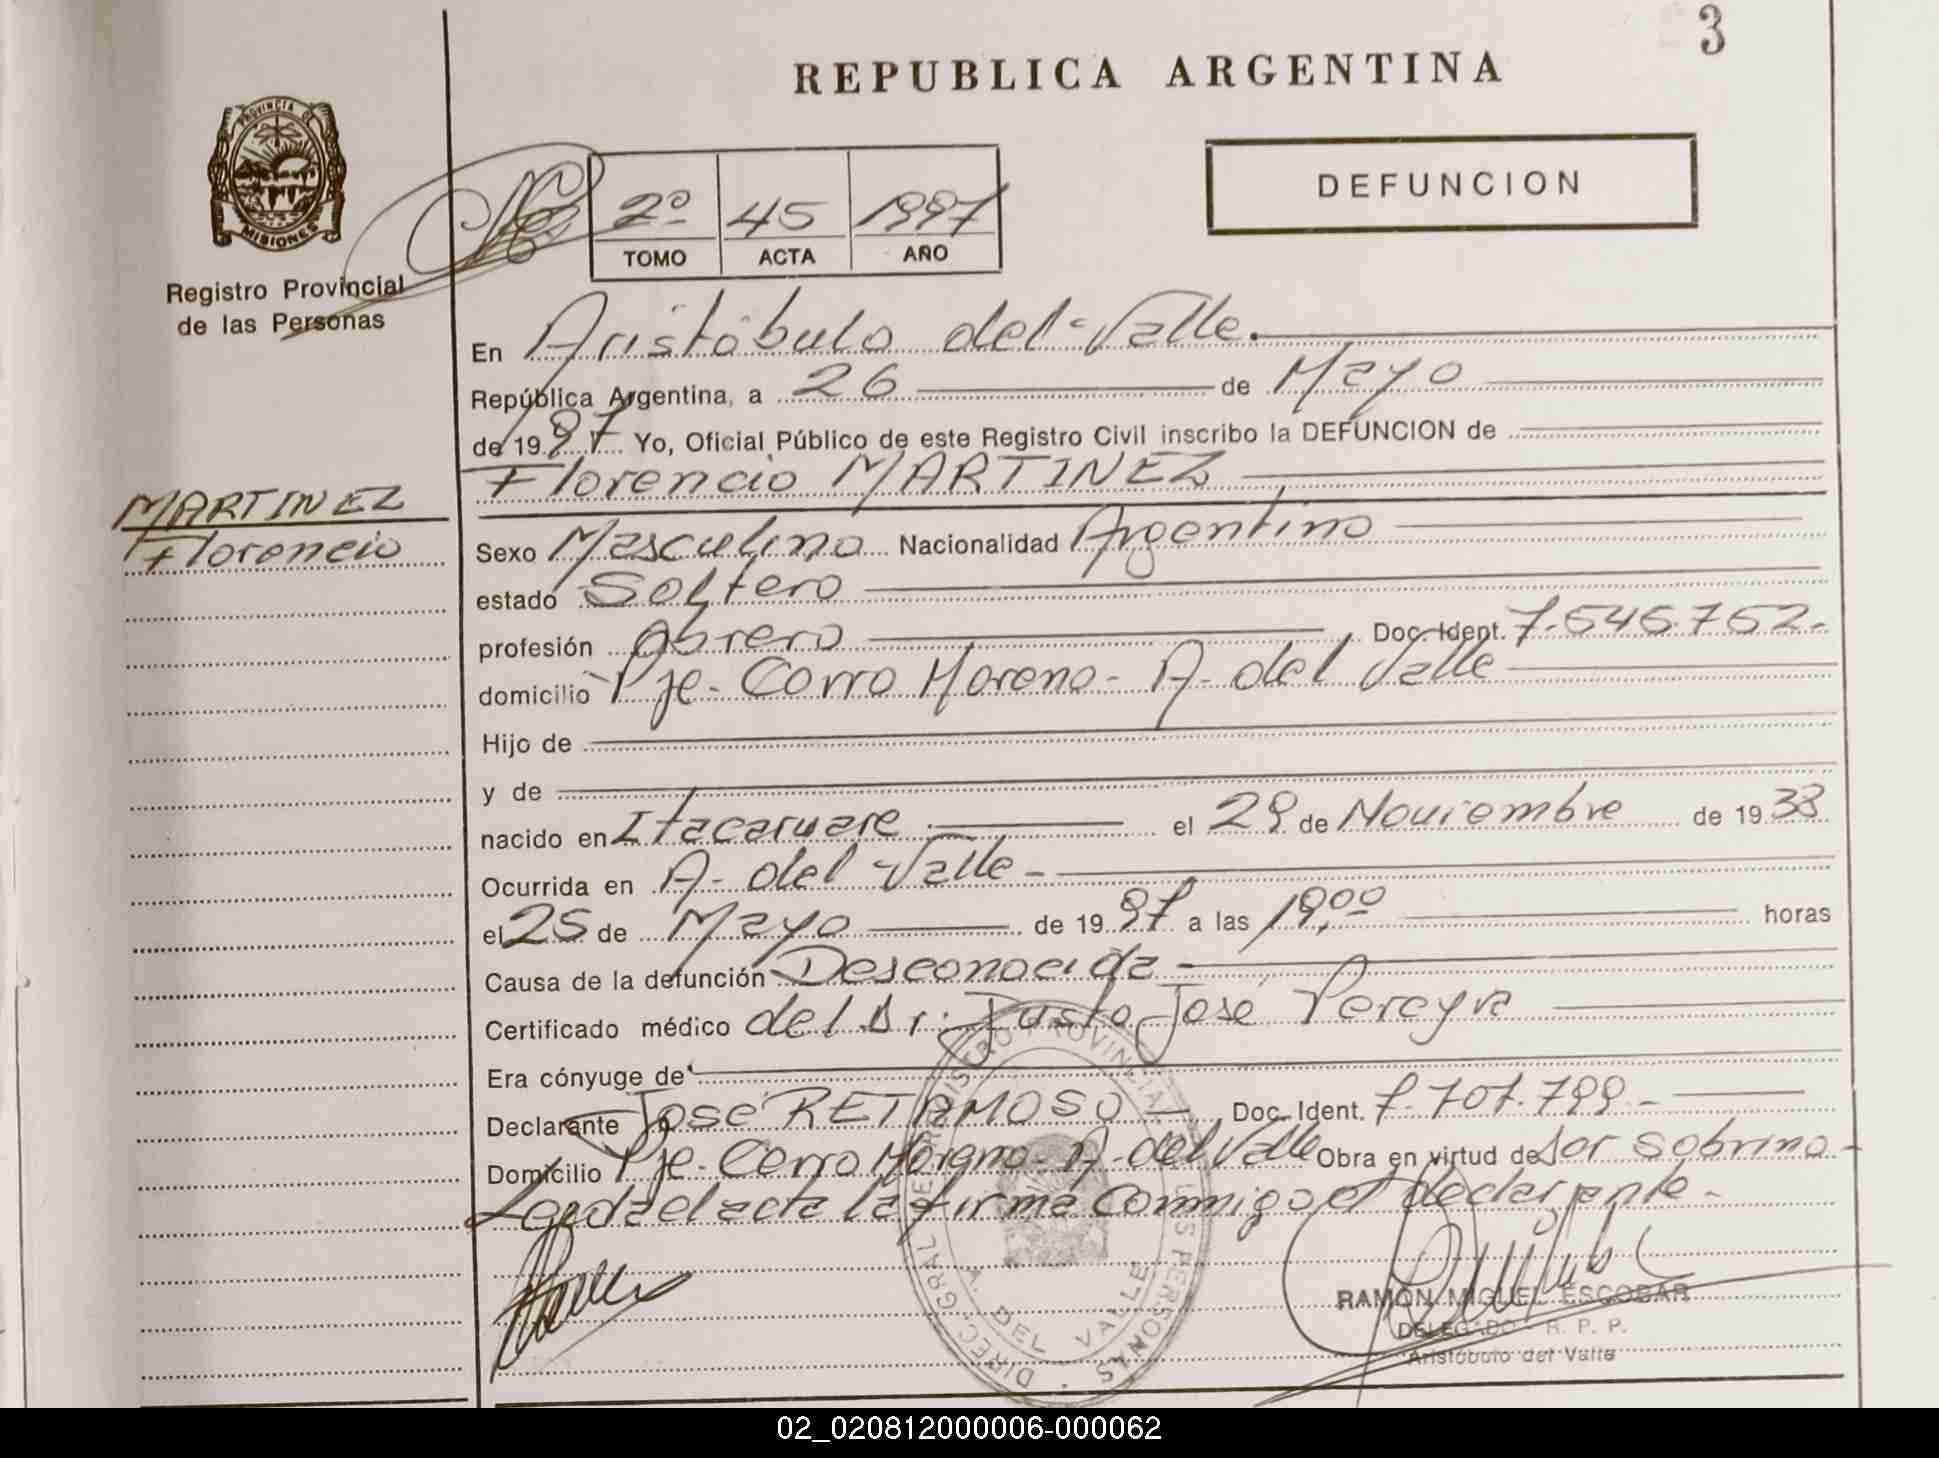 3
REPUBLICA ARGENTINA
PROVINCIA DE
MISIONES
Registro Provincial
de las Personas
2º 45 1997
TOMO ACTA AÑO
DEFUNCION
En Aristóbulo del Valle.
República Argentina, a 26 de Mayo
de 1997 Yo, Oficial Público de este Registro Civil inscribo la DEFUNCION de
Florencio MARTINEZ
MARTINEZ
Florencio
Sexo Masculino Nacionalidad Argentino
estado Soltero
profesión Obrero Doc. Ident. 7.546.752.-
domicilio Pje. Cerro Moreno - A. del Valle
Hijo de
y de
nacido en Itacaruare el 29 de Noviembre de 1938
Ocurrida en A. del Valle -
el 25 de Mayo de 1997 a las 19,00 horas
Causa de la defunción Desconocida -
Certificado médico del Dr. Justo José Pereyra
Era cónyuge de
Declarante José RETAMOSO - Doc. Ident. 7.707.799.-
Domicilio Pje. Cerro Moreno - A. del Valle Obra en virtud de ser sobrino -
Leida el acta la firma conmigo el declarante.-
DIREC. GRAL. DE REGISTRO PROVINCIAL DE LAS PERSONAS
A. DEL VALLE
RAMON MIGUEL ESCOBAR
DELEGADO - R. P. P.
Aristóbulo del Valle
02_020812000006-000062